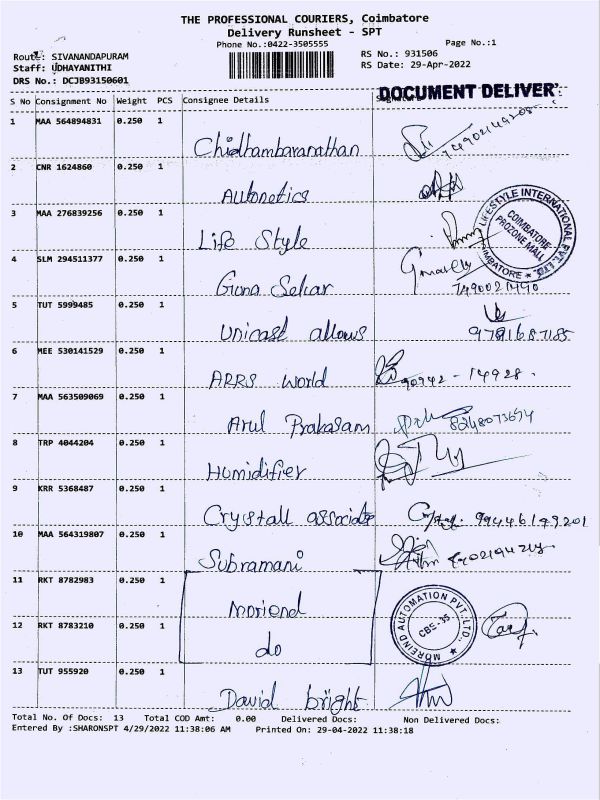 THE PROFESSIONAL COURIERS, Coimbatore
Delivery Runsheet - SPT
Phone No.:0422-3505555
Page No.:1
Route: SIVANANDAPURAM
RS No.: 931506
Staff: UDHAYANITHI
RS Date: 29-Apr-2022
DRS No.: DCJB93150601
DOCUMENT DELIVER
S No Consignment No Weight PCS Consignee Details
1 MAA 564894831 0.250 1
Chidhambaranathan
2 CNR 1624860 0.250 1
Autonetics
3 MAA 276839256 0.250 1
Life Style
LIFESTYLE INTERNATIONAL PVT. LTD.
COIMBATORE
PROZONE MALL
4 SLM 294511377 0.250 1
Guna Sekar
5 TUT 5999485 0.250 1
Unicast allows
6 MEE 530141529 0.250 1
ARRS World
90942 - 14928.
7 MAA 563509069 0.250 1
Arul Prakasam
8248073694
8 TRP 4044204 0.250 1
Humidifier
9 KRR 5368487 0.250 1
Crystall associate
99446199201
10 MAA 564319807 0.250 1
Subramani
11 RKT 8782983 0.250 1
Moriend
MOREIND AUTOMATION PVT. LTD.
CBE-35
12 RKT 8783210 0.250 1
do
13 TUT 955920 0.250 1
David bright
Total No. Of Docs: 13 Total COD Amt: 0.00 Delivered Docs: Non Delivered Docs:
Entered By :SHARONSPT 4/29/2022 11:38:06 AM Printed On: 29-04-2022 11:38:18